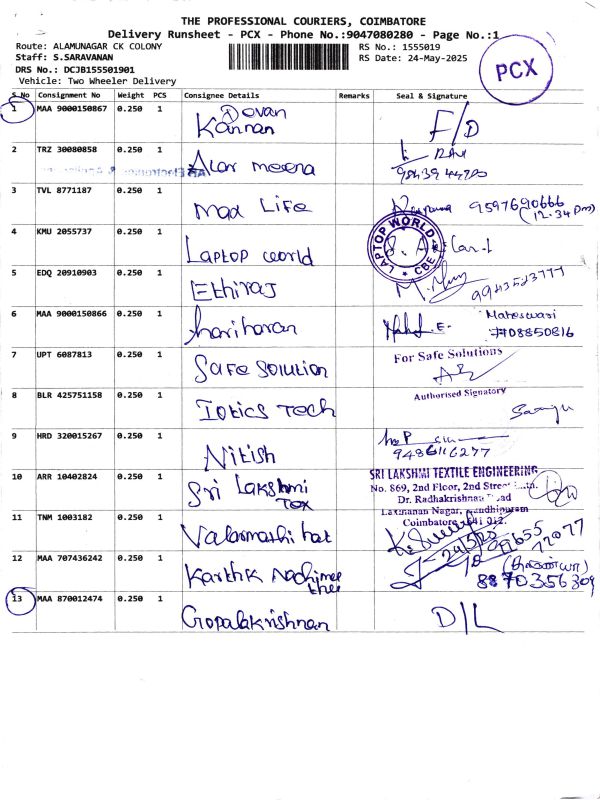 THE PROFESSIONAL COURIERS, COIMBATORE
Delivery Runsheet - PCX - Phone No.:9047080280 - Page No.:1
Route: ALAMUNAGAR CK COLONY
RS No.: 1555019
Staff: S.SARAVANAN
RS Date: 24-May-2025
DRS No.: DCJB155501901
Vehicle: Two Wheeler Delivery
PCX
S No Consignment No Weight PCS Consignee Details Remarks Seal & Signature
1 MAA 9000150867 0.250 1 Devan
Kannan F/D
2 TRZ 30080858 0.250 1 Alar meena RAVI
3 TVL 8771187 0.250 1 Max Life 9597690666
(12.34 pm)
4 KMU 2055737 0.250 1 Laptop world
LAPTOP WORLD
CBE
5 EDQ 20910903 0.250 1 Ethiraj
6 MAA 9000150866 0.250 1 hariharan Maheswari
7 UPT 6087813 0.250 1 Safe Solution
For Safe Solutions
Authorised Signatory
8 BLR 425751158 0.250 1 Iotics Tech
9 HRD 320015267 0.250 1 Nitish
9486116277
10 ARR 10402824 0.250 1 Sri Lakshmi
Tex
SRI LAKSHMI TEXTILE ENGINEERING
No. 869, 2nd Floor, 2nd Street
Dr. Radhakrishnan Road
Laxmanan Nagar, Gandhipuram
Coimbatore - 641 012.
11 TNM 1003182 0.250 1 Valarmathi
99655
72077
12 MAA 707436242 0.250 1 Karthk Nachimee
thee
8870356309
13 MAA 870012474 0.250 1 Gopalakrishnan D/L